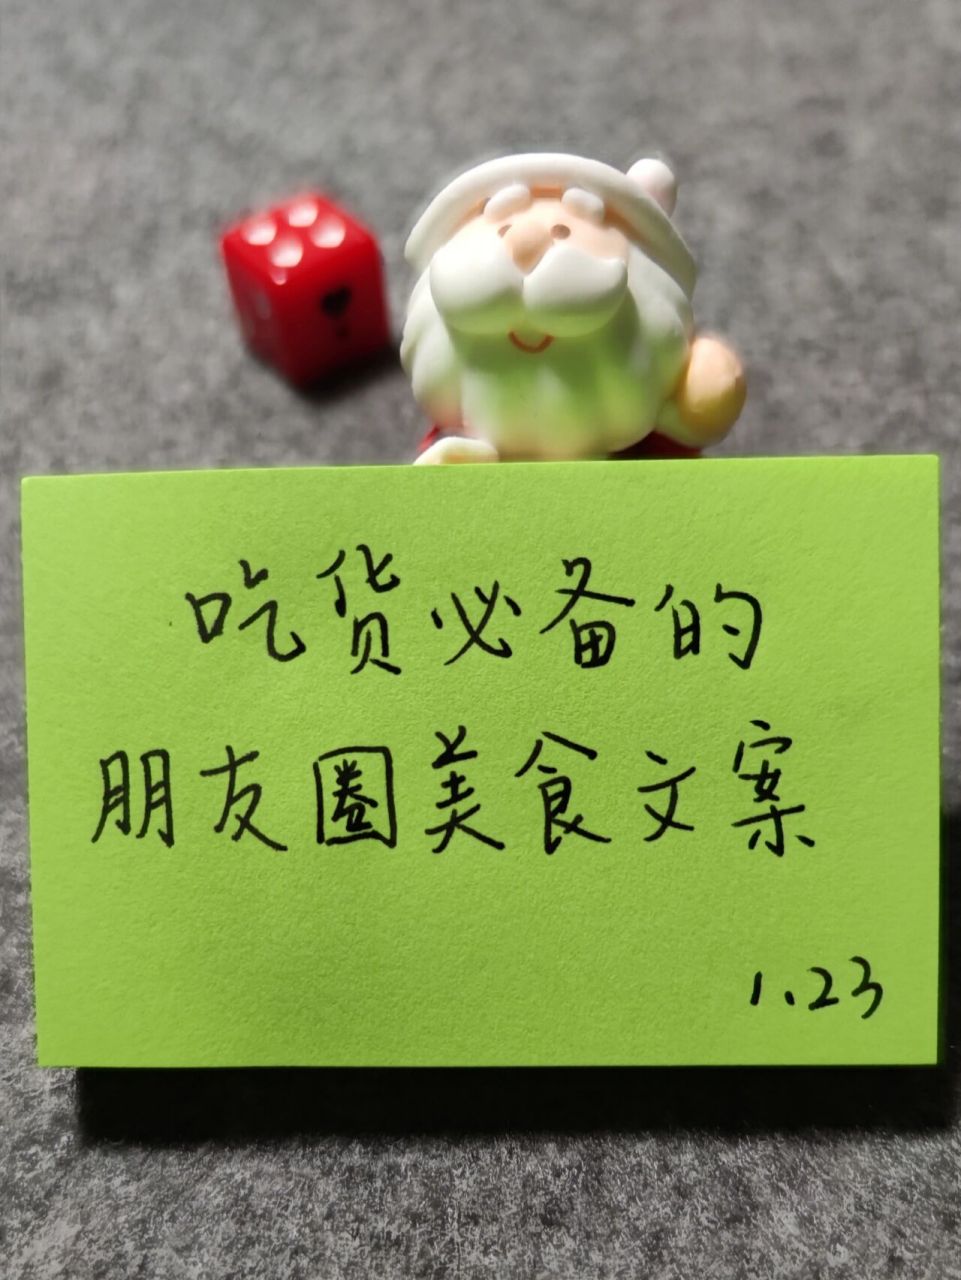 吃货必备的
朋友圈美食文案
1.23